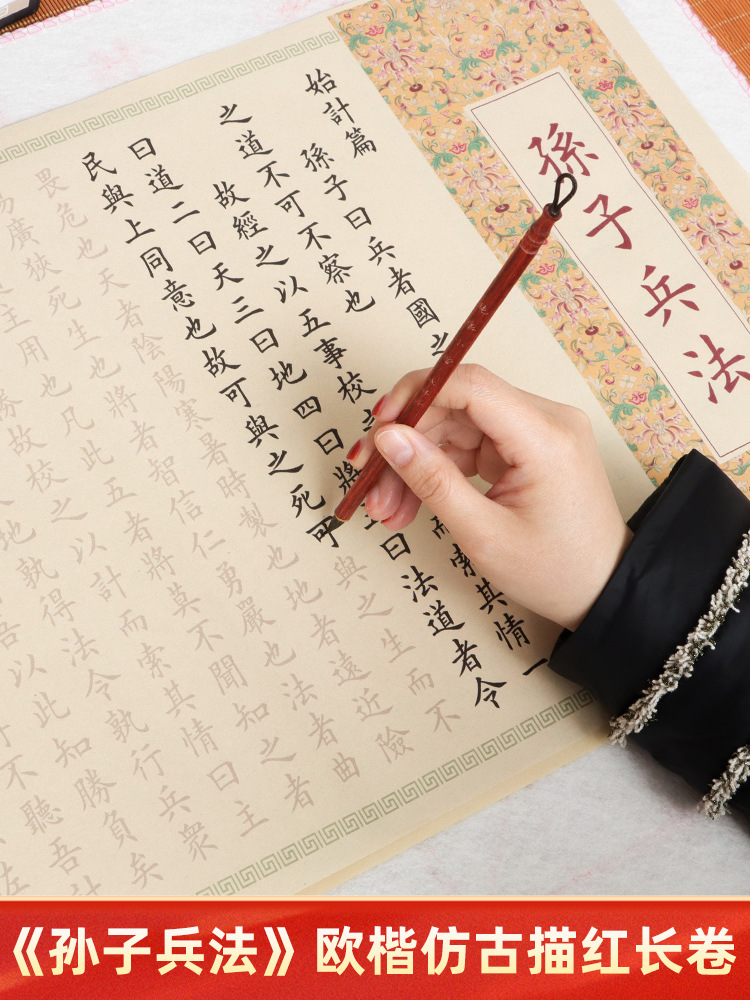 孫子兵法
始計篇
孫子曰兵者國之
之道不可不察也
故經之以五事校之而索其情一
曰道二曰天三曰地四曰將五曰法道者令
民與上同意也故可與之死可與之生而不
畏危也天者陰陽寒暑時製也地者遠近險
易廣狹死生也將者智信仁勇嚴也法者曲
主用也凡此五者將莫不聞知之者
勝故校之以計而索其情曰主
地孰得法令孰行兵眾
吾以此知勝負矣
不聽吾計
佐
《孙子兵法》欧楷仿古描红长卷